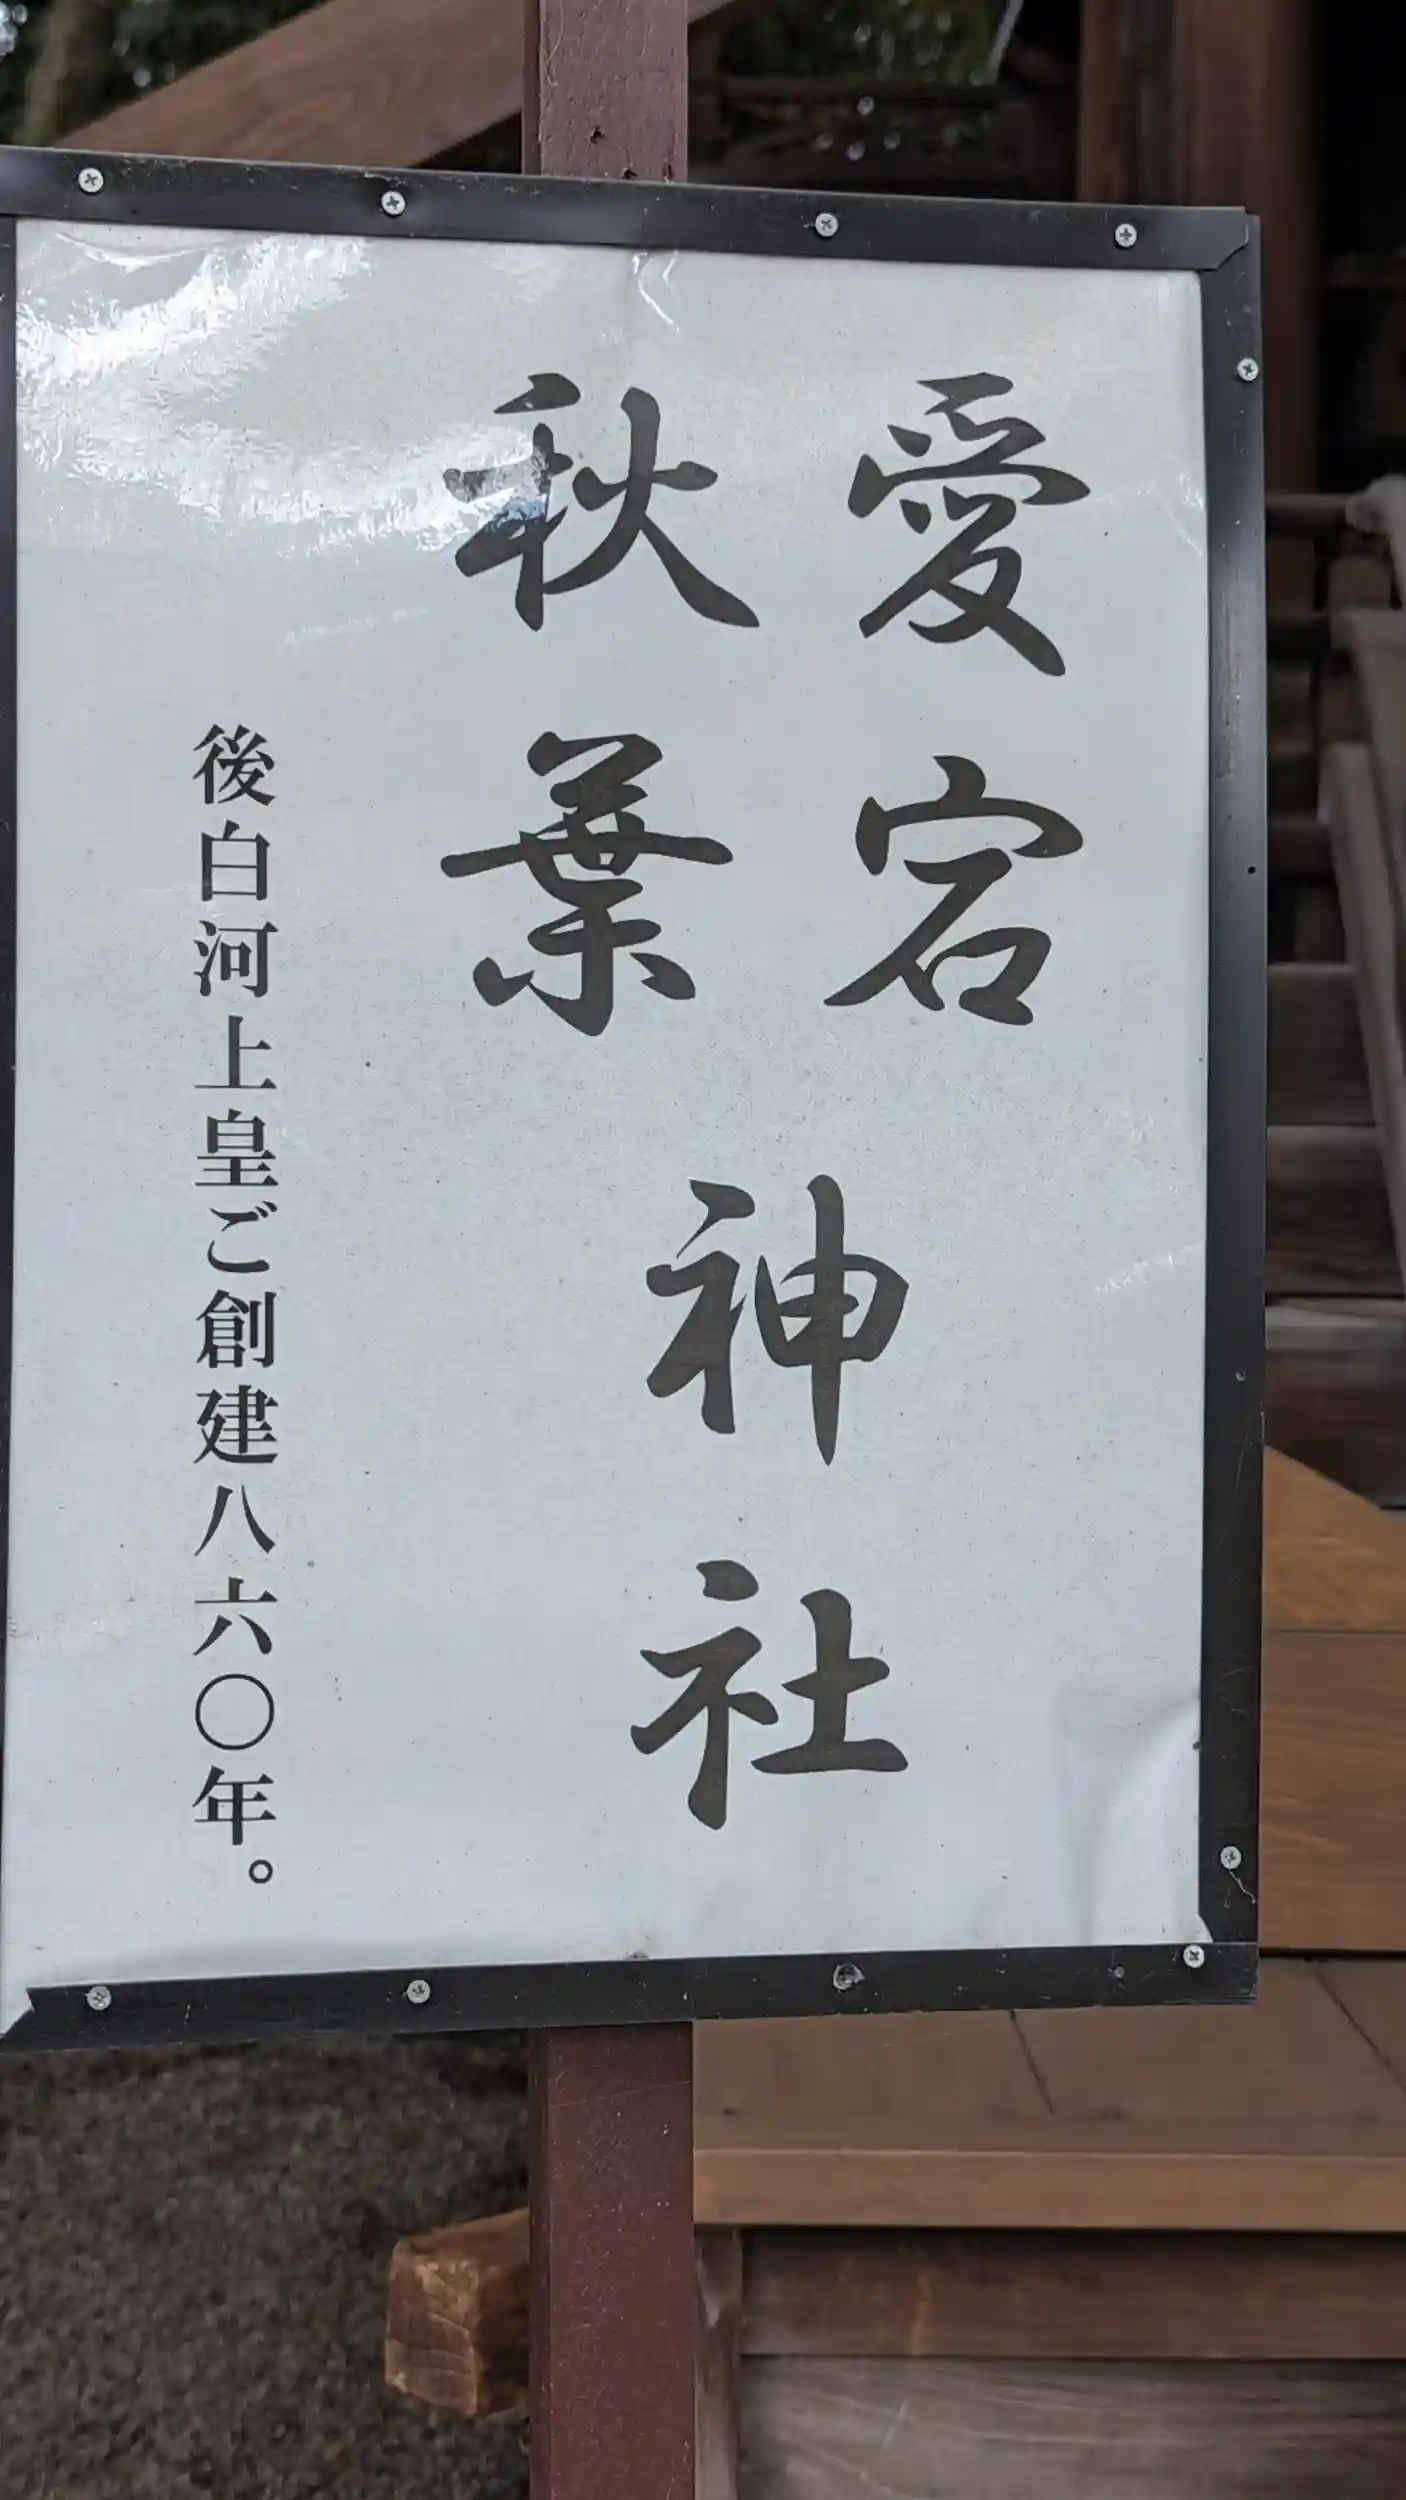 愛宕
秋葉
神社
後白河上皇ご創建八六〇年。